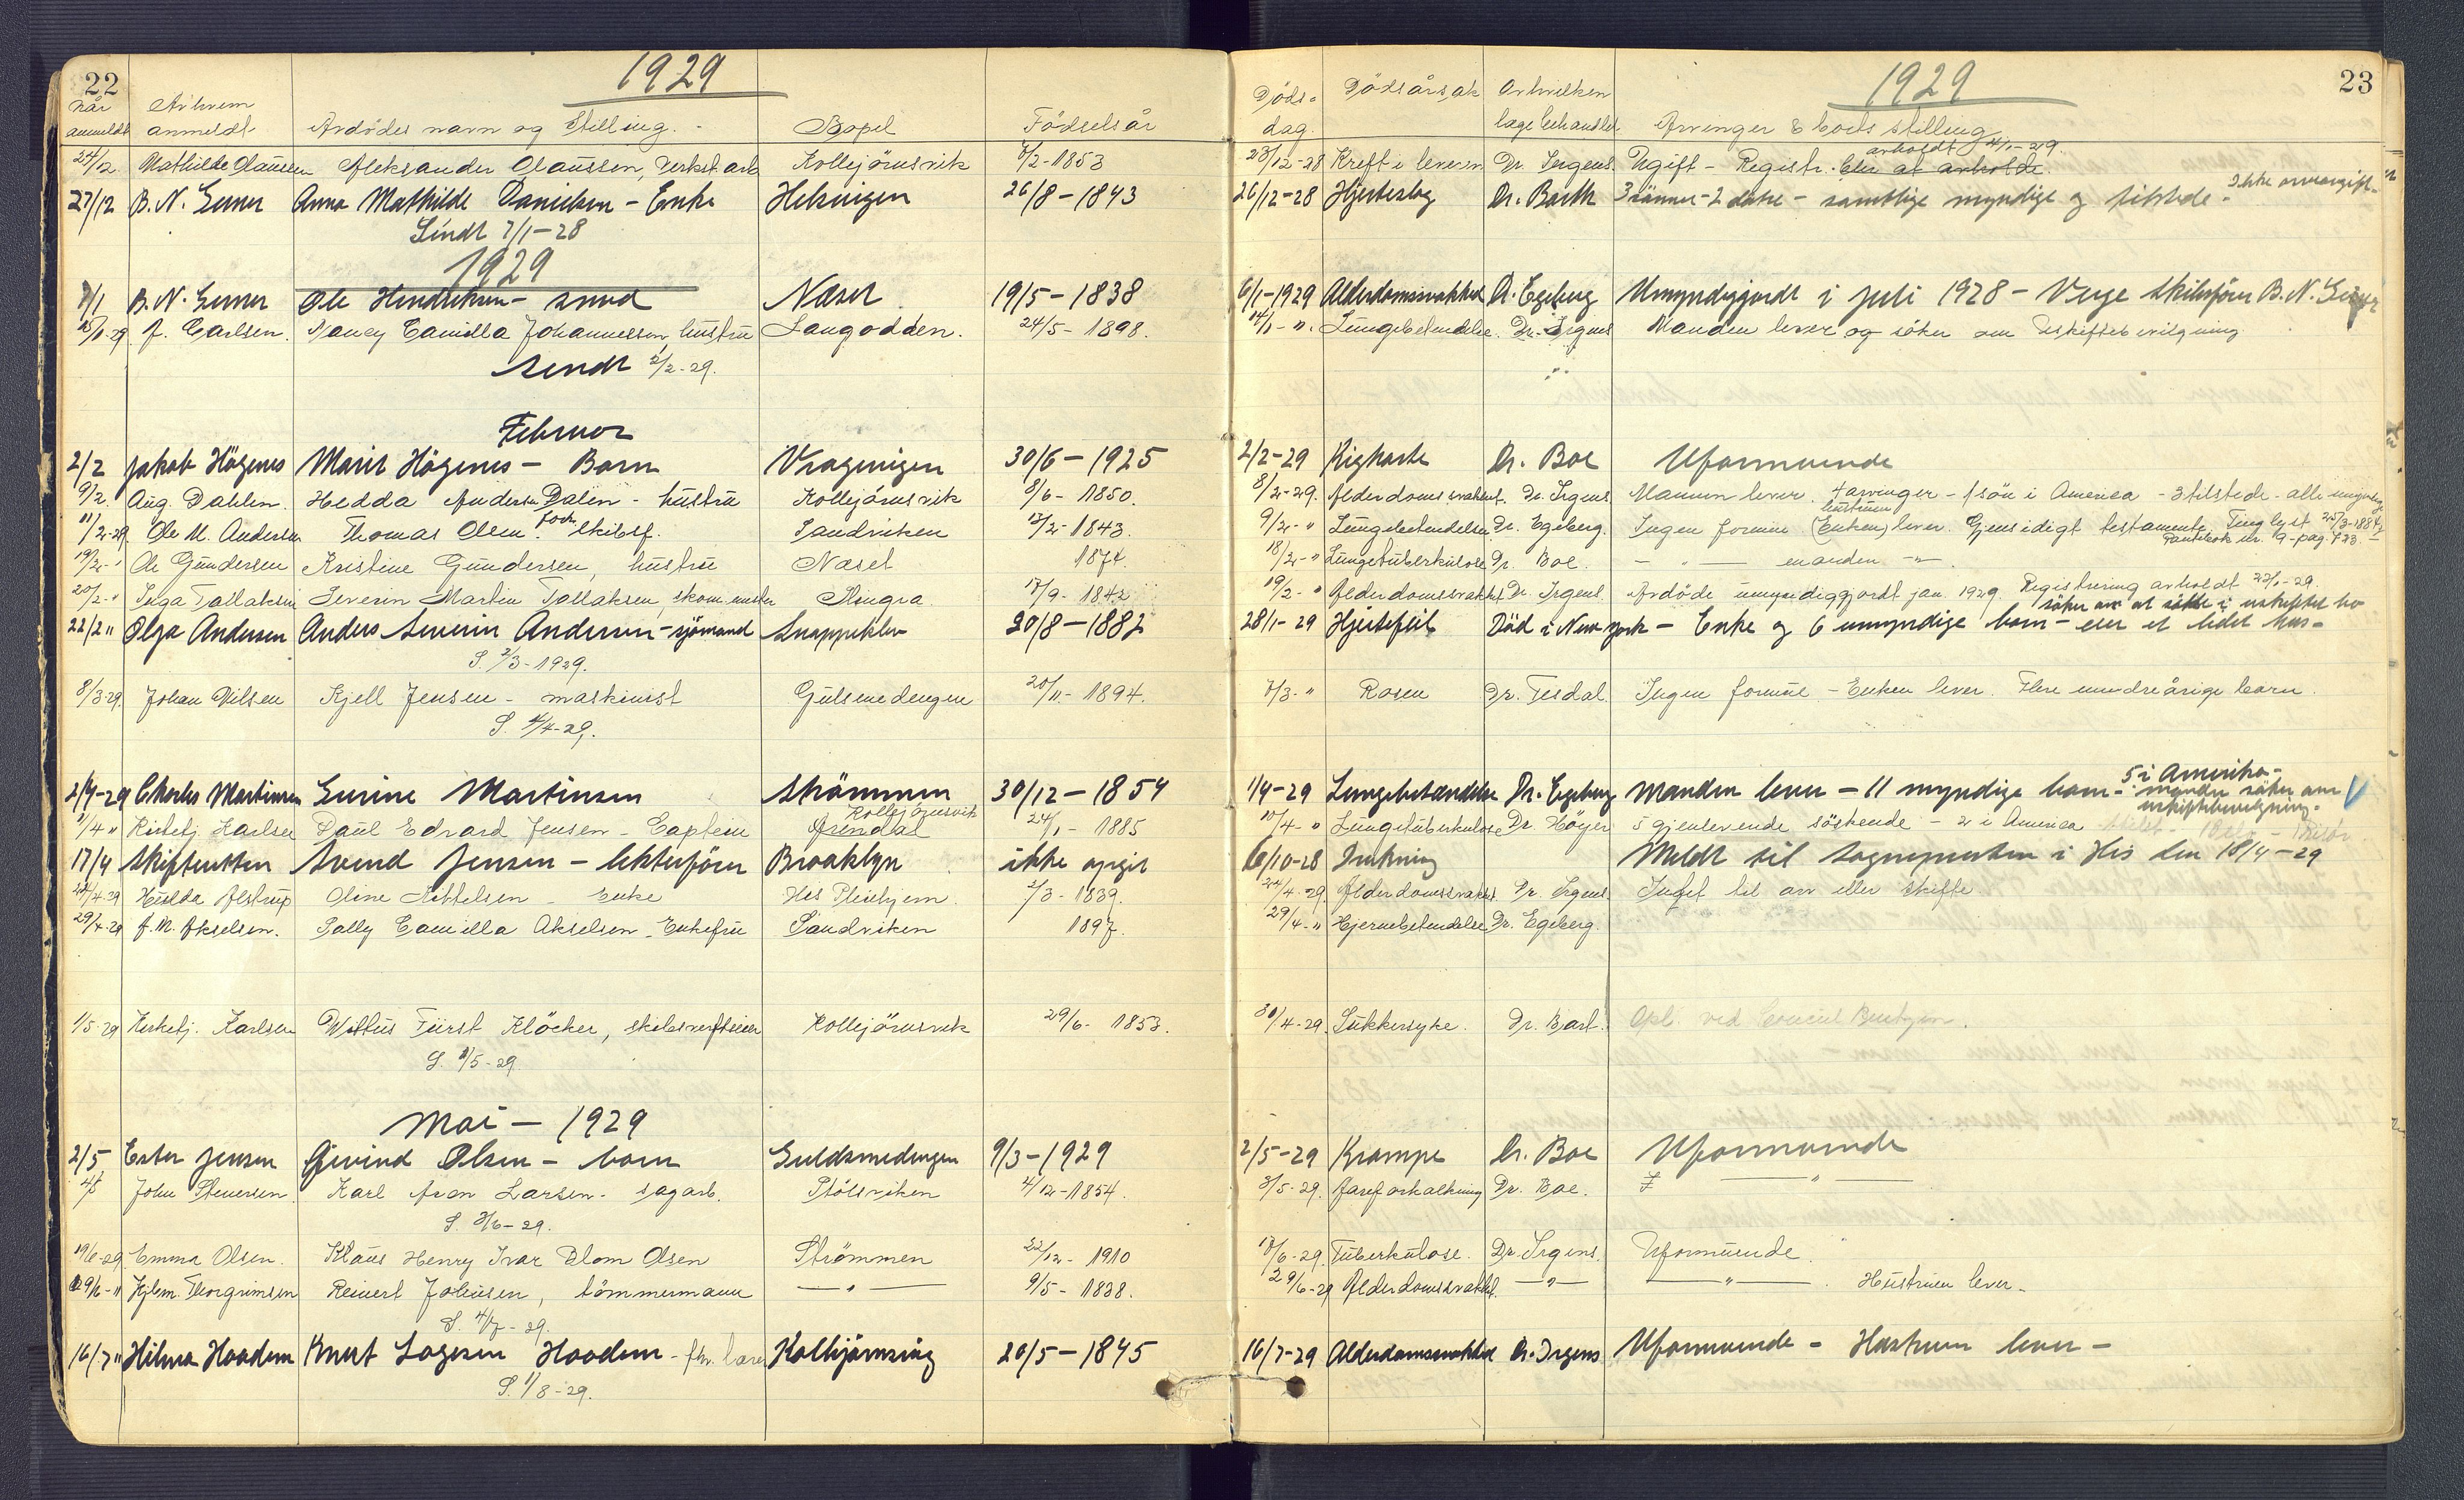 22 1929
Når anmeldt Av hvem anmeldt Avdödes navn og Stilling. - Bopel Födselsår
24/12 Mathilde Olaussen Aleksander Olaussen, Verkst. arb Kollejörnsvik 7/2-1853
27/12 B. N. Gerner Anna Mathilde Danielsen - Enke Helsingen 26/8-1843
Sendt 7/1-28
1929
B. N. Gerner Ole Hendriksen - smed Næset 19/5-1838
J. Carlsen. Nancy Camilla Johannessen, hustru Langodden. 24/5-1898.
Sendt 2/2-29.
Februar
2/2 Jakob Högenes Marit Högenes - Barn Vragvigen 30/6-1925
9/2 Aug. Dahlen. Hedda Andersen Dalen - hustru Kollejörnsvik 8/6-1850.
11/2-29 Ole M. Andersen Thomas Olsen. forh. skibsf. Sandviken 13/2-1843.
19/2-" Ole Gundersen Kristine Gundersen, hustru Næset 1874.
20/2-" Inga Tallaksen Severin Martin Tallaksen, skom.mester 17/9-1842
22/2" Olga Andersen Anders Severin Andersen - sjömand Snappeklev 30/8-1882
S. 2/3-1929.
8/3-29. Johan Nilsen Kjell Jensen - maskinist Gulsmedengen 20/11-1894.
S. 4/4-29.
2/4-29 Charles Martinsen Gurine Martinsen Strömmen 30/12-1854
Kollejörnsvik
Kirketj. Karlsen Paul Edvard Jensen - Captein Arendal 24/1-1885
17/4 Skifteretten Svend Jensen - lekterförer Brooklyn ikke opgit
24/4-29 Hulda Alstrup Oline Kittelsen - enke His Pleiehjem. 2/3-1839.
29/4-29 J. M. Akselsen. Sally Camilla Akselsen - Enkefru Sandviken 1897.
1/5-29 Kirketj. Karlsen Wittus Fürst Klöcker, skibsverftseier Kollejörnsvik 29/6-1853.
S. 1/5-29.
Mai - 1929
2/5 Ester Jensen Eivind Olsen - barn Guldsmedengen 9/3-1929
4/5 John Steuersen. Karl Aron Larsen - sagarb. Stölsviken 4/12-1854.
S. 3/6-29.
19/6-29 Emma Olsen. Klaus Henry Ivar Blom Olsen Strömmen 22/12-1910
29/6-" Hjlm. Thorgrimsen Reinert Johnsen, tömmermann — " — 9/5-1838.
S. 4/7-29.
16/7" Hilma Haadem Knut Lagesen Haadem - fhv. lærer Kolbjörnsvig 20/5-1845
S. 1/8-29.
1929 23
Döds-dag. Dödsårsak Av hvilken læge behandlet Arvinger & boets stilling
avholdt 4/1-29.
23/12-28 Kreft i leveren. Dr. Irgens. Ugift - Registr. blir at avholde.
26/12-28 Hjerteslag Dr. Barth 3 sönner - 2 døtre - samtlige myndige og tilstede. Ikke arveavgift.
6/1-1929 Alderdomssvakhed Dr. Egeberg Umyndiggjordt i juli 1928 - Verge skibsförer B. N. Gerner
14/1-". Lungebetendelse. Dr. Irgens Manden lever og söker om uskiftebevilgning
2/2-29 Kighoste Dr. Boe Uformuende
8/2-29. Alderdomssvakhet. Dr. Irgens. Mannen lever. 4 arvinger - 1 sön i America - 3 tilstede - alle myndige
hustruen
9/2-" Lungebetendelse Dr. Egeberg. Ingen formue (Enken) lever. Gjensidigt testamente Tinglyst 25/3-1884
Pantebok nr. 9 - pag. 723. -
18/2-" Lungetuberkulose Dr. Boe. - " - manden - " -
19/2-" Alderdomssvakhet Dr. Irgens. Avdöde umyndiggjordt jan. 1929. Registrering avholdt 22/1-29.
söker om at sitte i uskiftet bo
28/1-29 Hjertefeil Död i New York - Enke og 6 umyndige barn - eier et lidet hus -
7/3-" Rosen Dr. Tesdal. Ingen formue - Enken lever. Flere mindreårige barn.
5 i Amerika -
1/4-29 Lungebetændelse Dr. Egeberg Manden lever - 11 myndige barn - manden söker om
uskiftebevilgning.
10/4-" Lungetuberkulose Dr Höyer 5 gjenlevende söskende - 2 i America
6/10-28 Drukning Meldt til sognepresten i His den 18/4-29
24/4-29. Alderdomssvakhet. Dr. Irgens Intet til arv eller skifte
29/4-" Hjernebetendelse Dr. Egeberg.
30/4-29. Sukkersyke. Dr. Bart. Opl. ved
2/5-29 Krampe Dr. Boe Uformuende
3/5-29. Åreforkalkning Dr. Boe. — " —
17/6-29. Tuberkulose. Dr. Irgens. Uformuende.
29/6-29 Alderdomssvakhet. — " — — " — . Hustruen lever.
16/7-29 Alderdomssvakhed Dr. Irgens Uformuende - Hustruen lever -